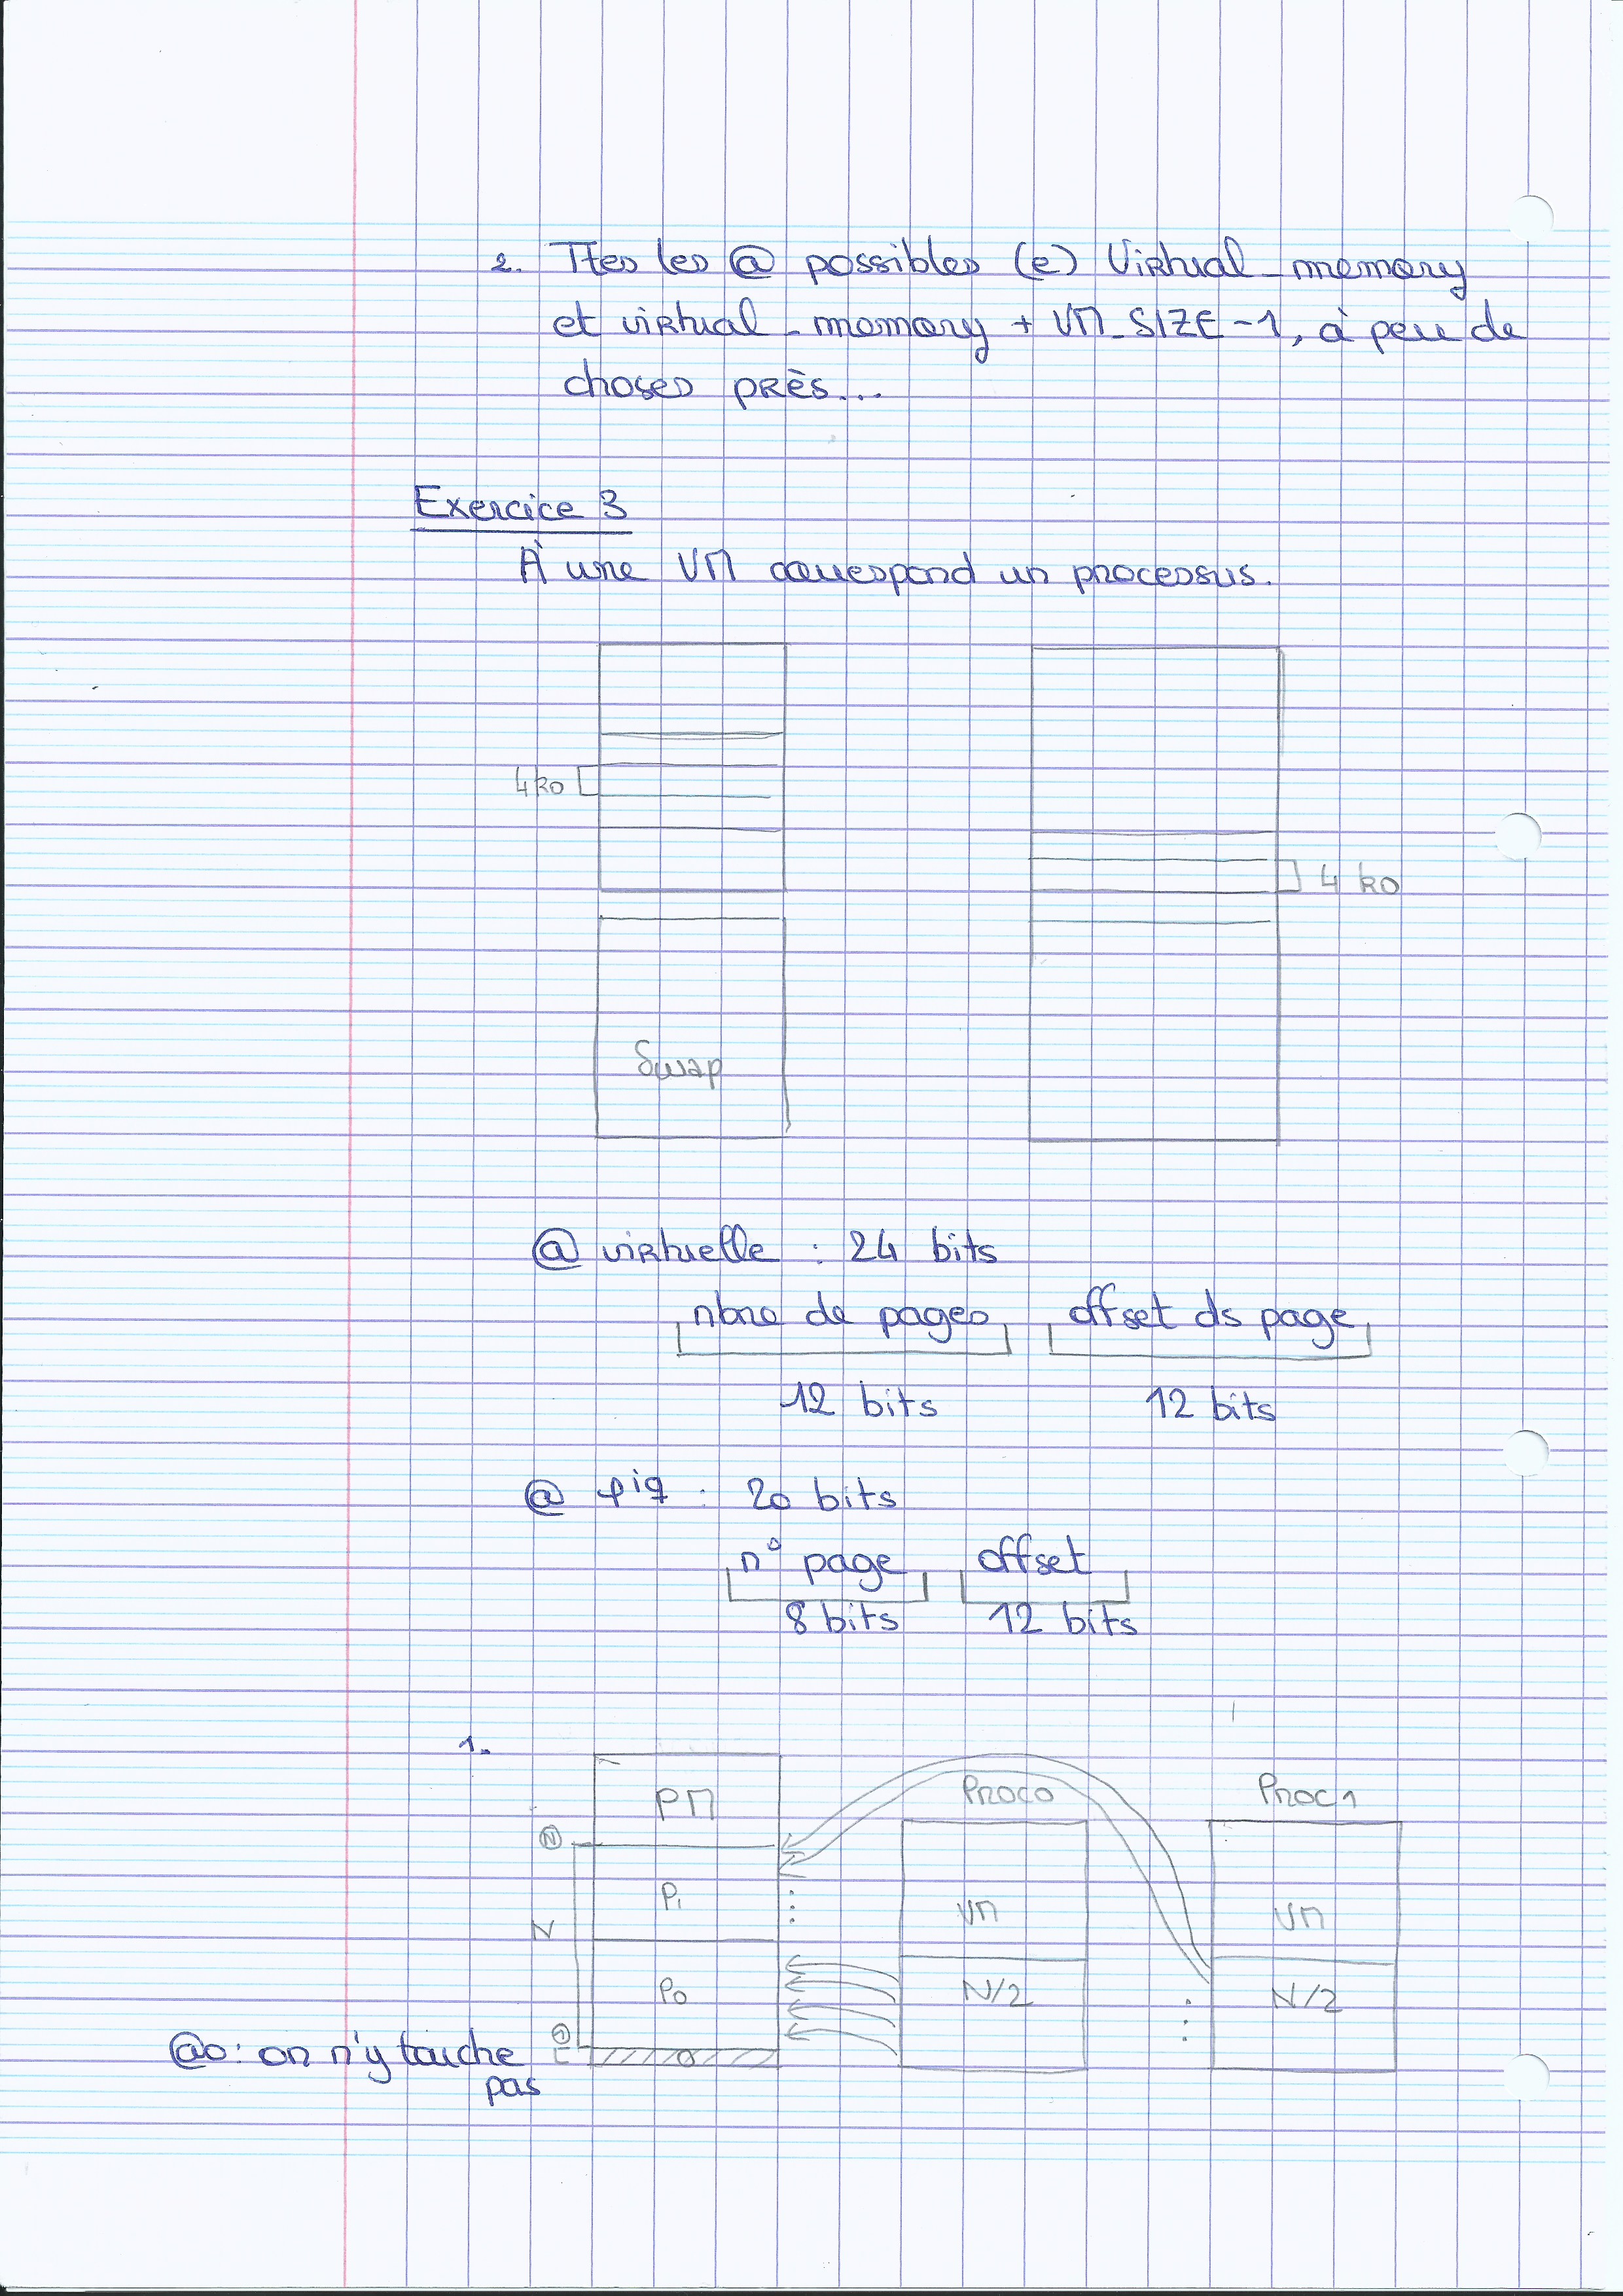 2. Ttes les @ possibles (e) Virtual_memory
et virtual_memory + VM_SIZE-1, à peu de
choses près...
Exercice 3
À une VM correspond un processus.
4ko
4 ko
Swap
@ virtuelle : 24 bits
nbre de pages offset ds page
12 bits 12 bits
@ φiq : 20 bits
n° page offset
8 bits 12 bits
1.
PM Proc0 Proc1
N
P1 VM VM
N
P0 N/2 N/2
@0: on n'y touche
pas
0